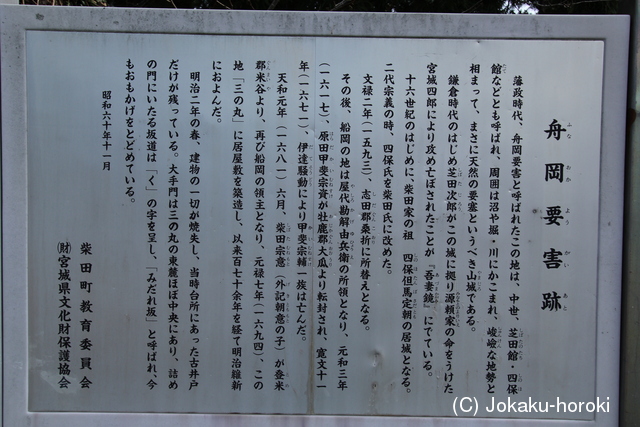 舟岡要害跡
ふなおかようがいあと
藩政時代、舟岡要害と呼ばれたこの地は、中世、芝田館・四保
館などとも呼ばれ、周囲は沼や堀・川にかこまれ、峻嶮な地勢と
相まって、まさに天然の要塞というべき山城である。
鎌倉時代のはじめ芝田次郎がこの城に拠り源頼家の命をうけた
宮城四郎により攻め亡ぼされたことが『吾妻鏡』にでている。
十六世紀のはじめに、柴田家の祖 四保但馬定朝の居城となる。
二代宗義の時、四保氏を柴田氏に改めた。
文禄二年(一五九三)、志田郡桑折に所替えとなる。
その後、船岡の地は屋代勘解由兵衛の所領となり、元和三年
(一六一七)、原田甲斐宗資が牡鹿郡大瓜より転封され、寛文十一
年(一六七一)、伊達騒動により甲斐宗輔一族は亡んだ。
天和元年(一六八一)六月、柴田宗意(外記朝意の子)が登米
郡米谷より、再び船岡の領主となり、元禄七年(一六九四)、この
地「三の丸」に居屋敷を築造し、以来百七十余年を経て明治維新
におよんだ。
明治二年の春、建物の一切が焼失し、当時台所にあった古井戸
だけが残っている。大手門は三の丸の東麓ほぼ中央にあり、詰め
の門にいたる坂道は「く」の字を呈し、「みだれ坂」と呼ばれ、今
もおもかげをとどめている。
昭和六十年十一月
柴田町教育委員会
(財)宮城県文化財保護協会
(C) Jokaku-horoki